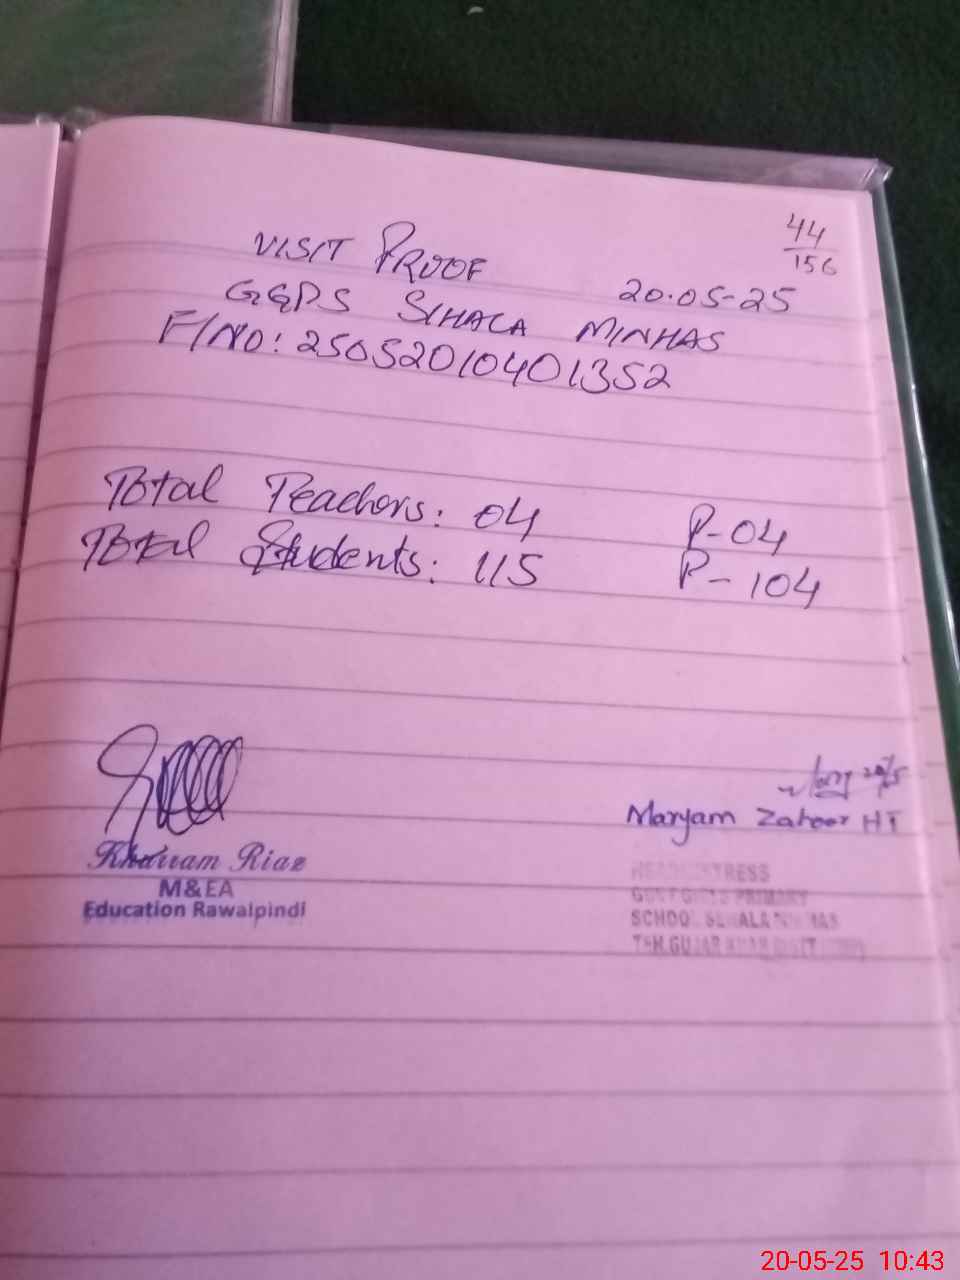 44
156
VISIT PROOF
20.05-25
GGPS SIHALA MINHAS
F/NO: 25052010401352
Total Teachers: 04 P-04
Total Students: 115 P-104
20/5
Khurram Riaz
M&EA
Education Rawalpindi
Maryam Zahoor HT
HEADMISTRESS
GOVT GIRLS PRIMARY
SCHOOL SEHALA MINHAS
TEH.GUJAR KHAN DISTT
20-05-25 10:43